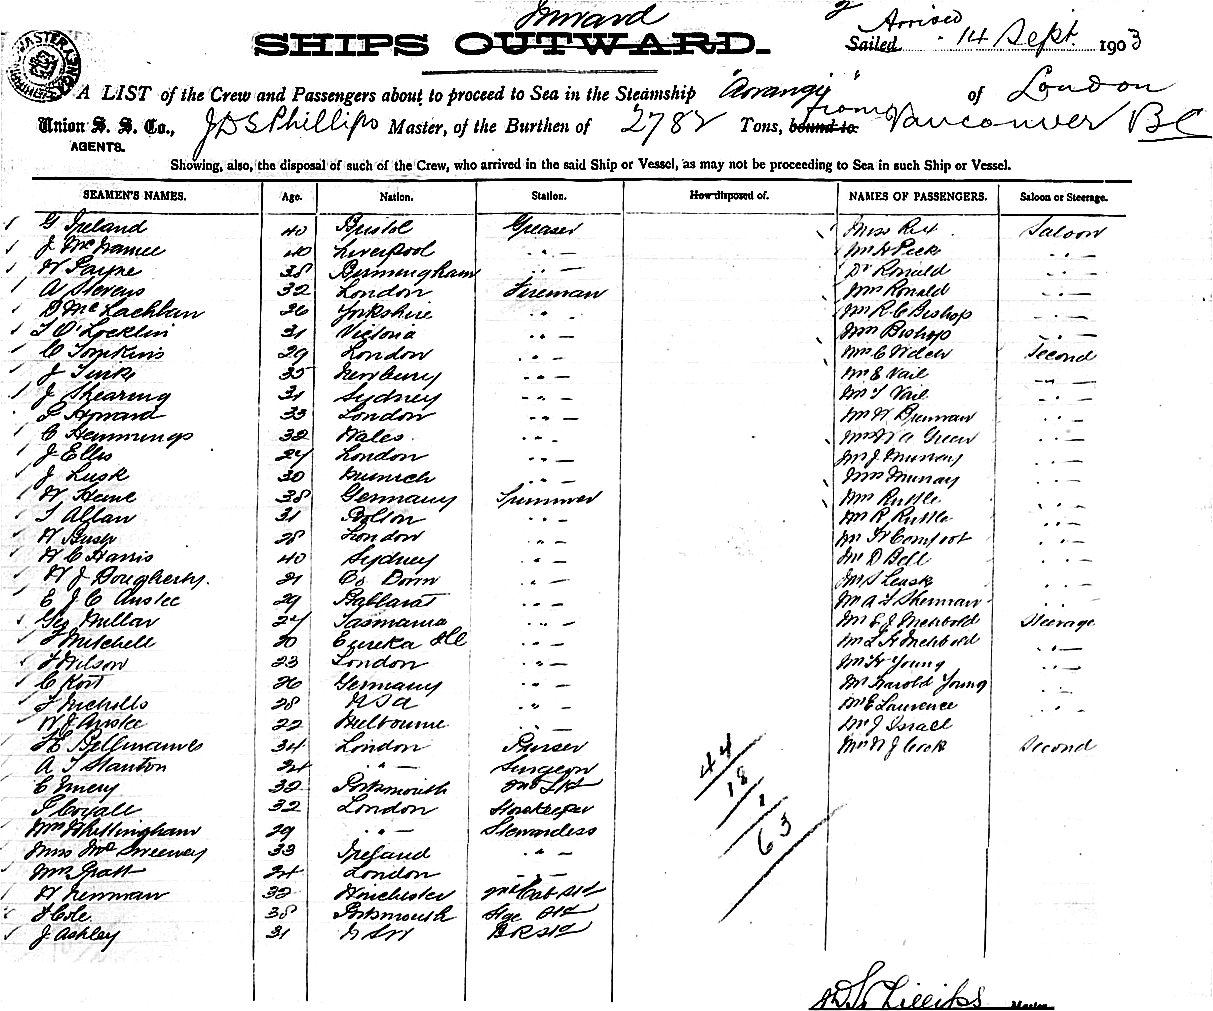 Inward
SHIPS OUTWARD.
Arrived
Sailed 14 Sept. 1903
A LIST of the Crew and Passengers about to proceed to Sea in the Steamship "Aorangi" of London
Union S. S. Co., J D S Phillips Master, of the Burthen of 2782 Tons, bound to from Vancouver BC
AGENTS.
Showing, also, the disposal of such of the Crew, who arrived in the said Ship or Vessel, as may not be proceeding to Sea in such Ship or Vessel.
SEAMEN'S NAMES. Age. Nation. Station. How disposed of. NAMES OF PASSENGERS. Saloon or Steerage.
G Ireland 40 Bristol Greaser Miss Rex Saloon
J McNamee 40 Liverpool " Mr H Peck "
W Payne 38 Birmingham " Dr Ronald "
A Stevens 32 London Fireman Mrs Ronald "
D McLachlan 26 Yorkshire " Mr R C Bishop "
T O'Locklin 31 Victoria " Mrs Bishop "
C Tomkins 29 London " Mrs C Second
J Turk 35 Newbury " Mr E Vail "
J Shearing 31 Sydney " Mr T Vail "
Howard 33 London " Mr W Brennan "
C Hemmings 32 Wales " Green "
J Ellis 24 London " Mr J Murray "
J Lusk 30 " Mrs Murray "
W Heine 38 Germany Trimmer Mrs Rustle "
T Allan 31 Bolton " Mr R Rustle "
W Bush 28 London " Mr W Comfoot "
W C Harris 40 Sydney " Mr D Bell "
W J Dougherty. 21 Co Down " Mr S Leask "
E J C Anstee 29 Ballarat " Mr A T Sherman "
Geo Millar 24 Tasmania " Mr E J Steerage
F Mitchell 20 Eureka Ill "
F Wilson 23 London " Mr H Young "
C Kort 26 Germany " Mr Harold Young "
F Nicholls 28 USA " Mr E Laurence "
W J Anstee 22 Melbourne " Mr J Israel
H C Bellmaine 34 London Purser Mrs N J Cock Second
A T Stanton 24 " Surgeon 44
C Emery 32 Portsmouth 18
Covall 32 London Storekeeper 1
Mrs Whittingham 29 " Stewardess 63
Miss McSweeney 33 Ireland "
Mrs Pratt 24 London "
W Newman 32 Winchester
F Cole 38 Portsmouth
J Ashley 31 NSW
JDS Phillips Master